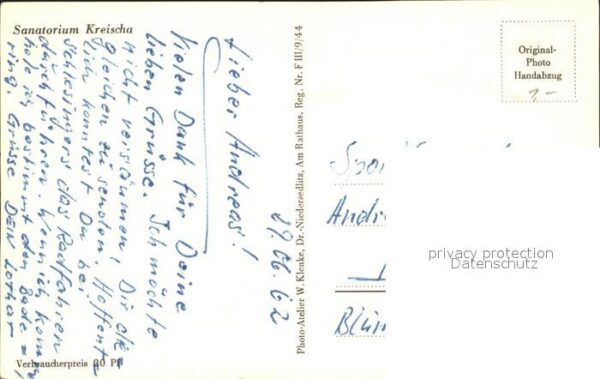 Sanatorium Kreischa
Lieber Andreas!
Vielen Dank für Deine
lieben Grüsse. Ich möchte
nicht versäumen, Dir die
gleichen zu senden. Hoffent=
lich konntest Du bei
Schlesingers das Radfahren
durchführen. Wenn ich komme
hole ich bestimmt den Bade=
ring. Grüsse Dein Lothar
Verbraucherpreis 20 Pf
Photo-Atelier W. Klenke, Dr.-Niedersedlitz, Am Rathaus, Reg. Nr. F III/9/44
29.06.62
Original-
Photo
Handabzug
privacy protection
Datenschutz